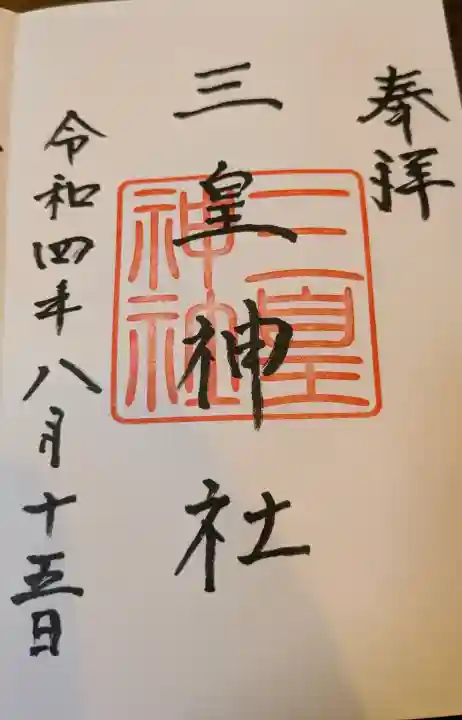 奉拝
三皇神社
三皇
神社
令和四年八月十五日